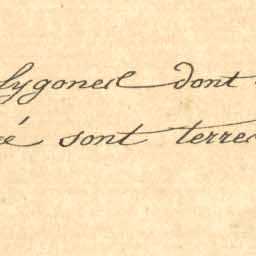 lygones dont
é sont terre